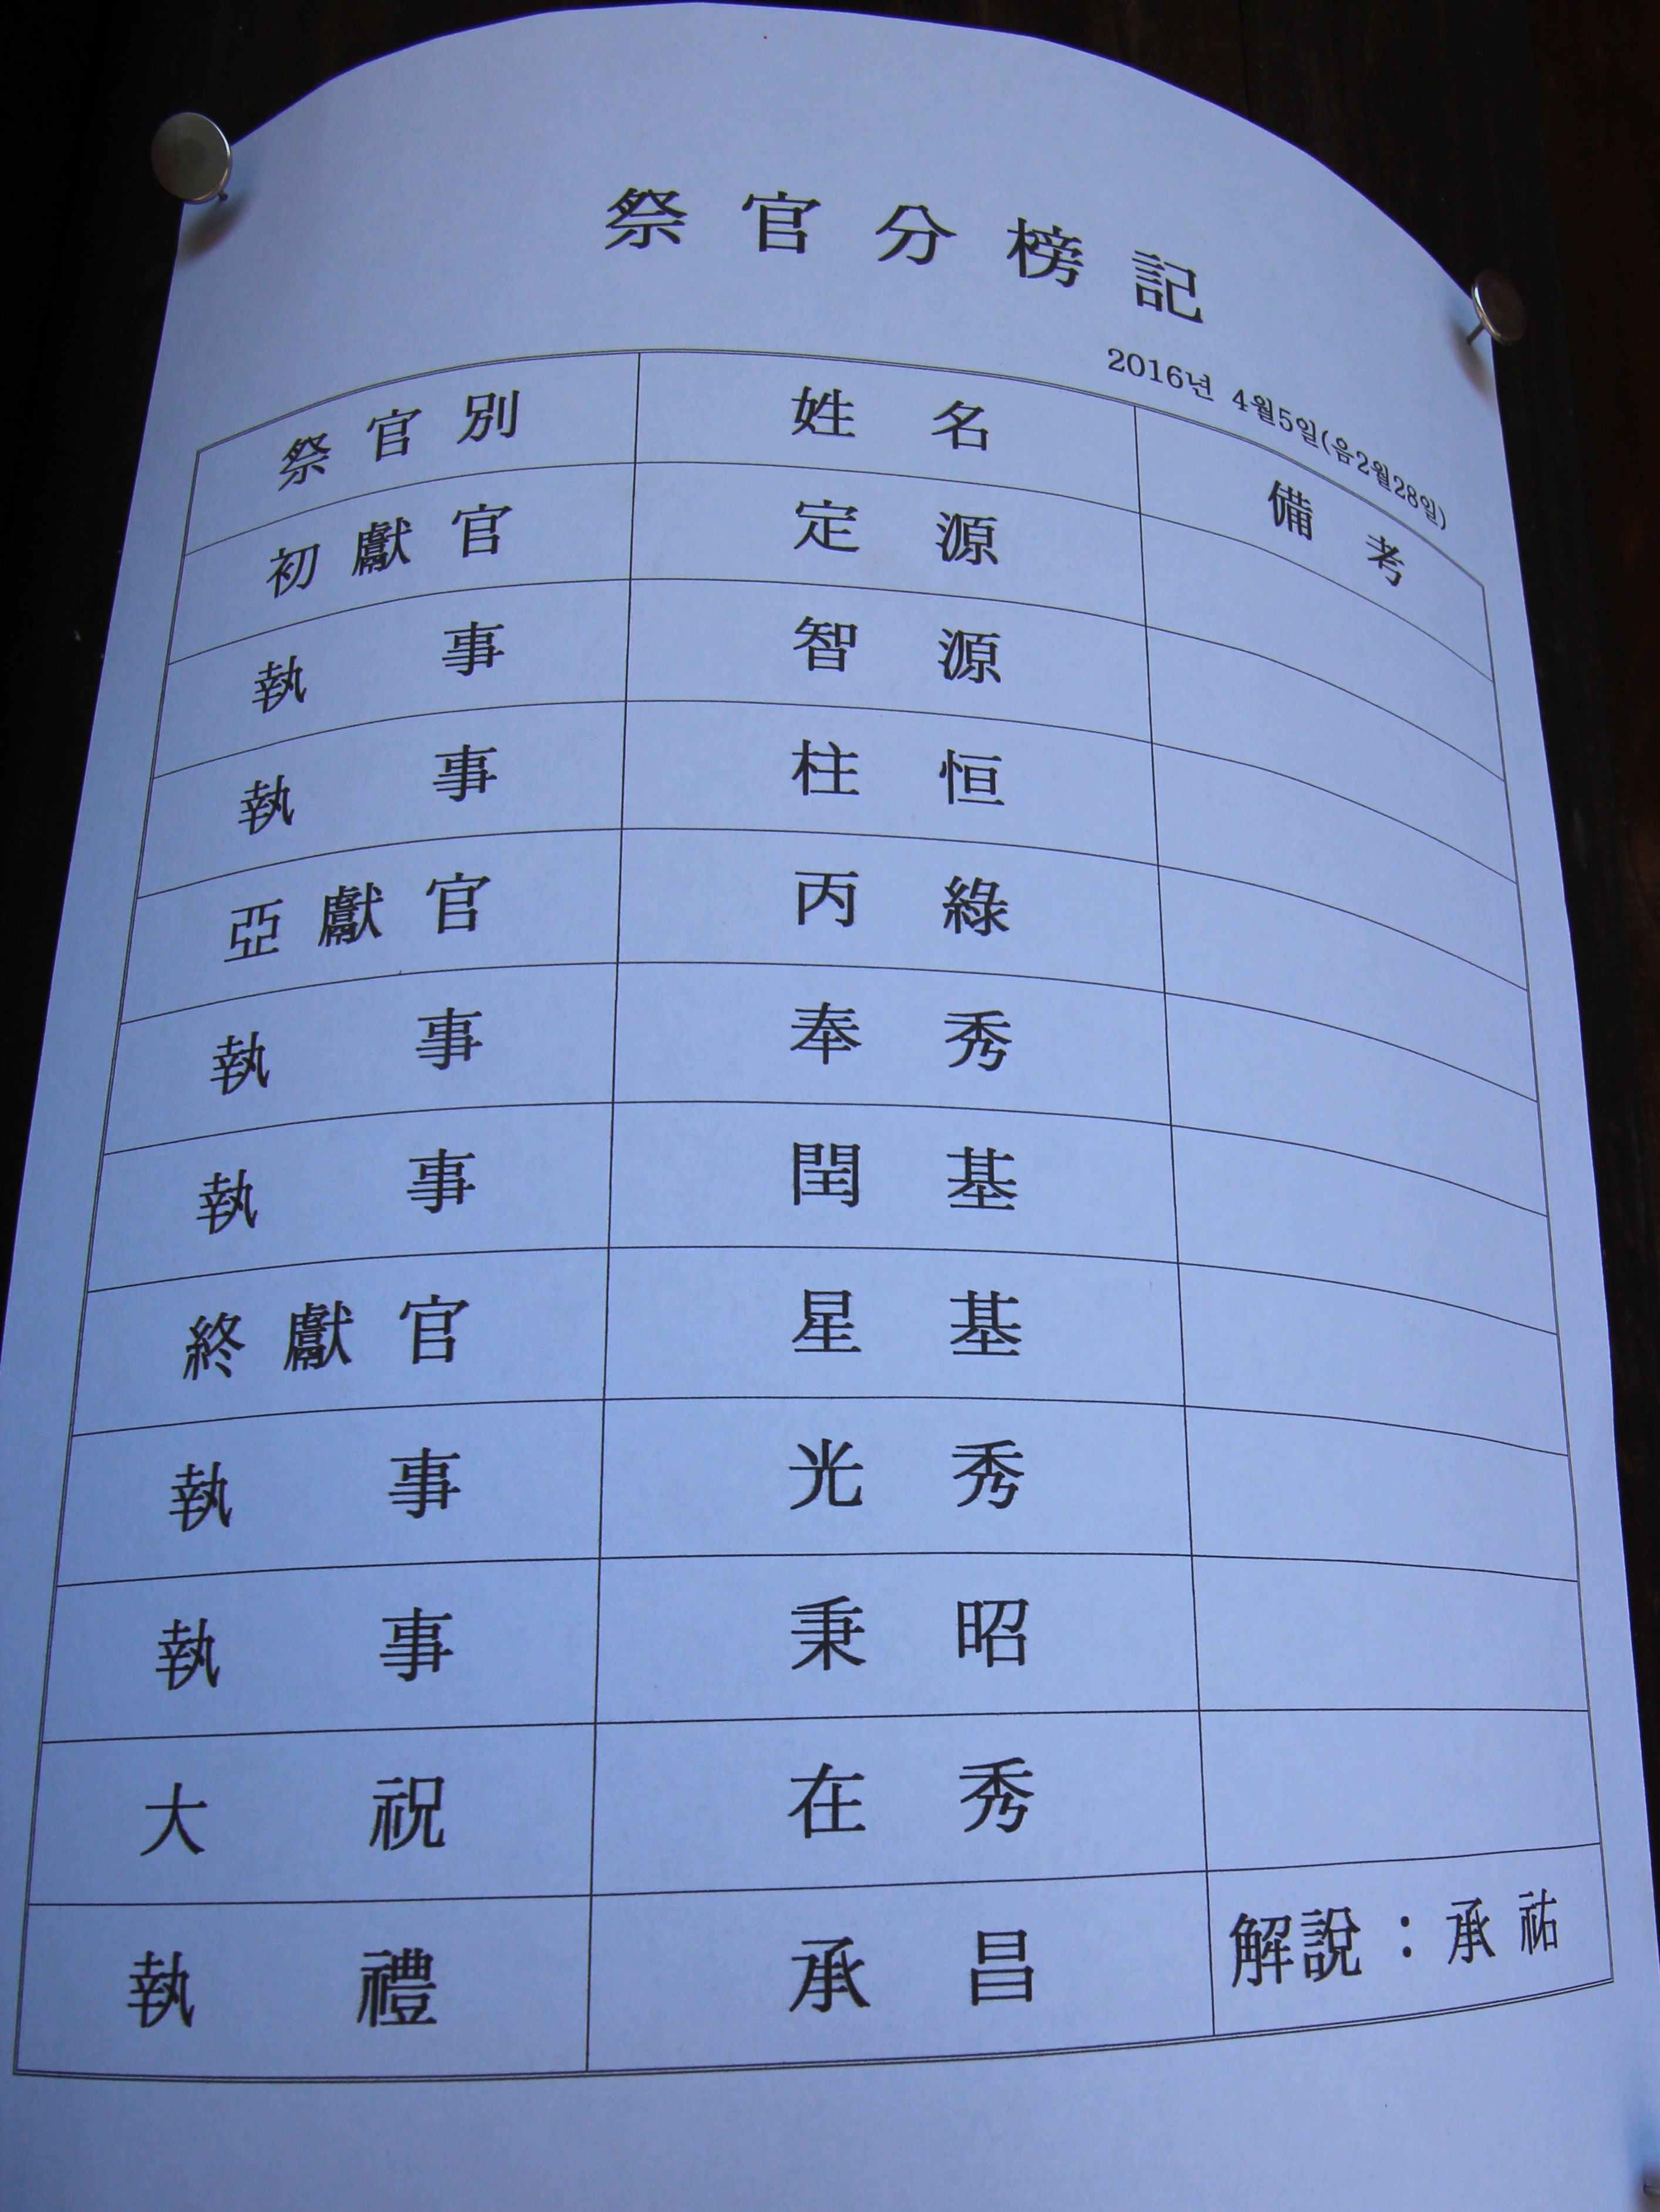 祭官分榜記
2016년 4월5일(음2월28일)
祭官別 姓名 備考
初獻官 定源
執事 智源
執事 柱恒
亞獻官 丙綠
執事 奉秀
執事 閏基
終獻官 星基
執事 光秀
執事 秉昭
大祝 在秀
執禮 承昌 解說：承祐